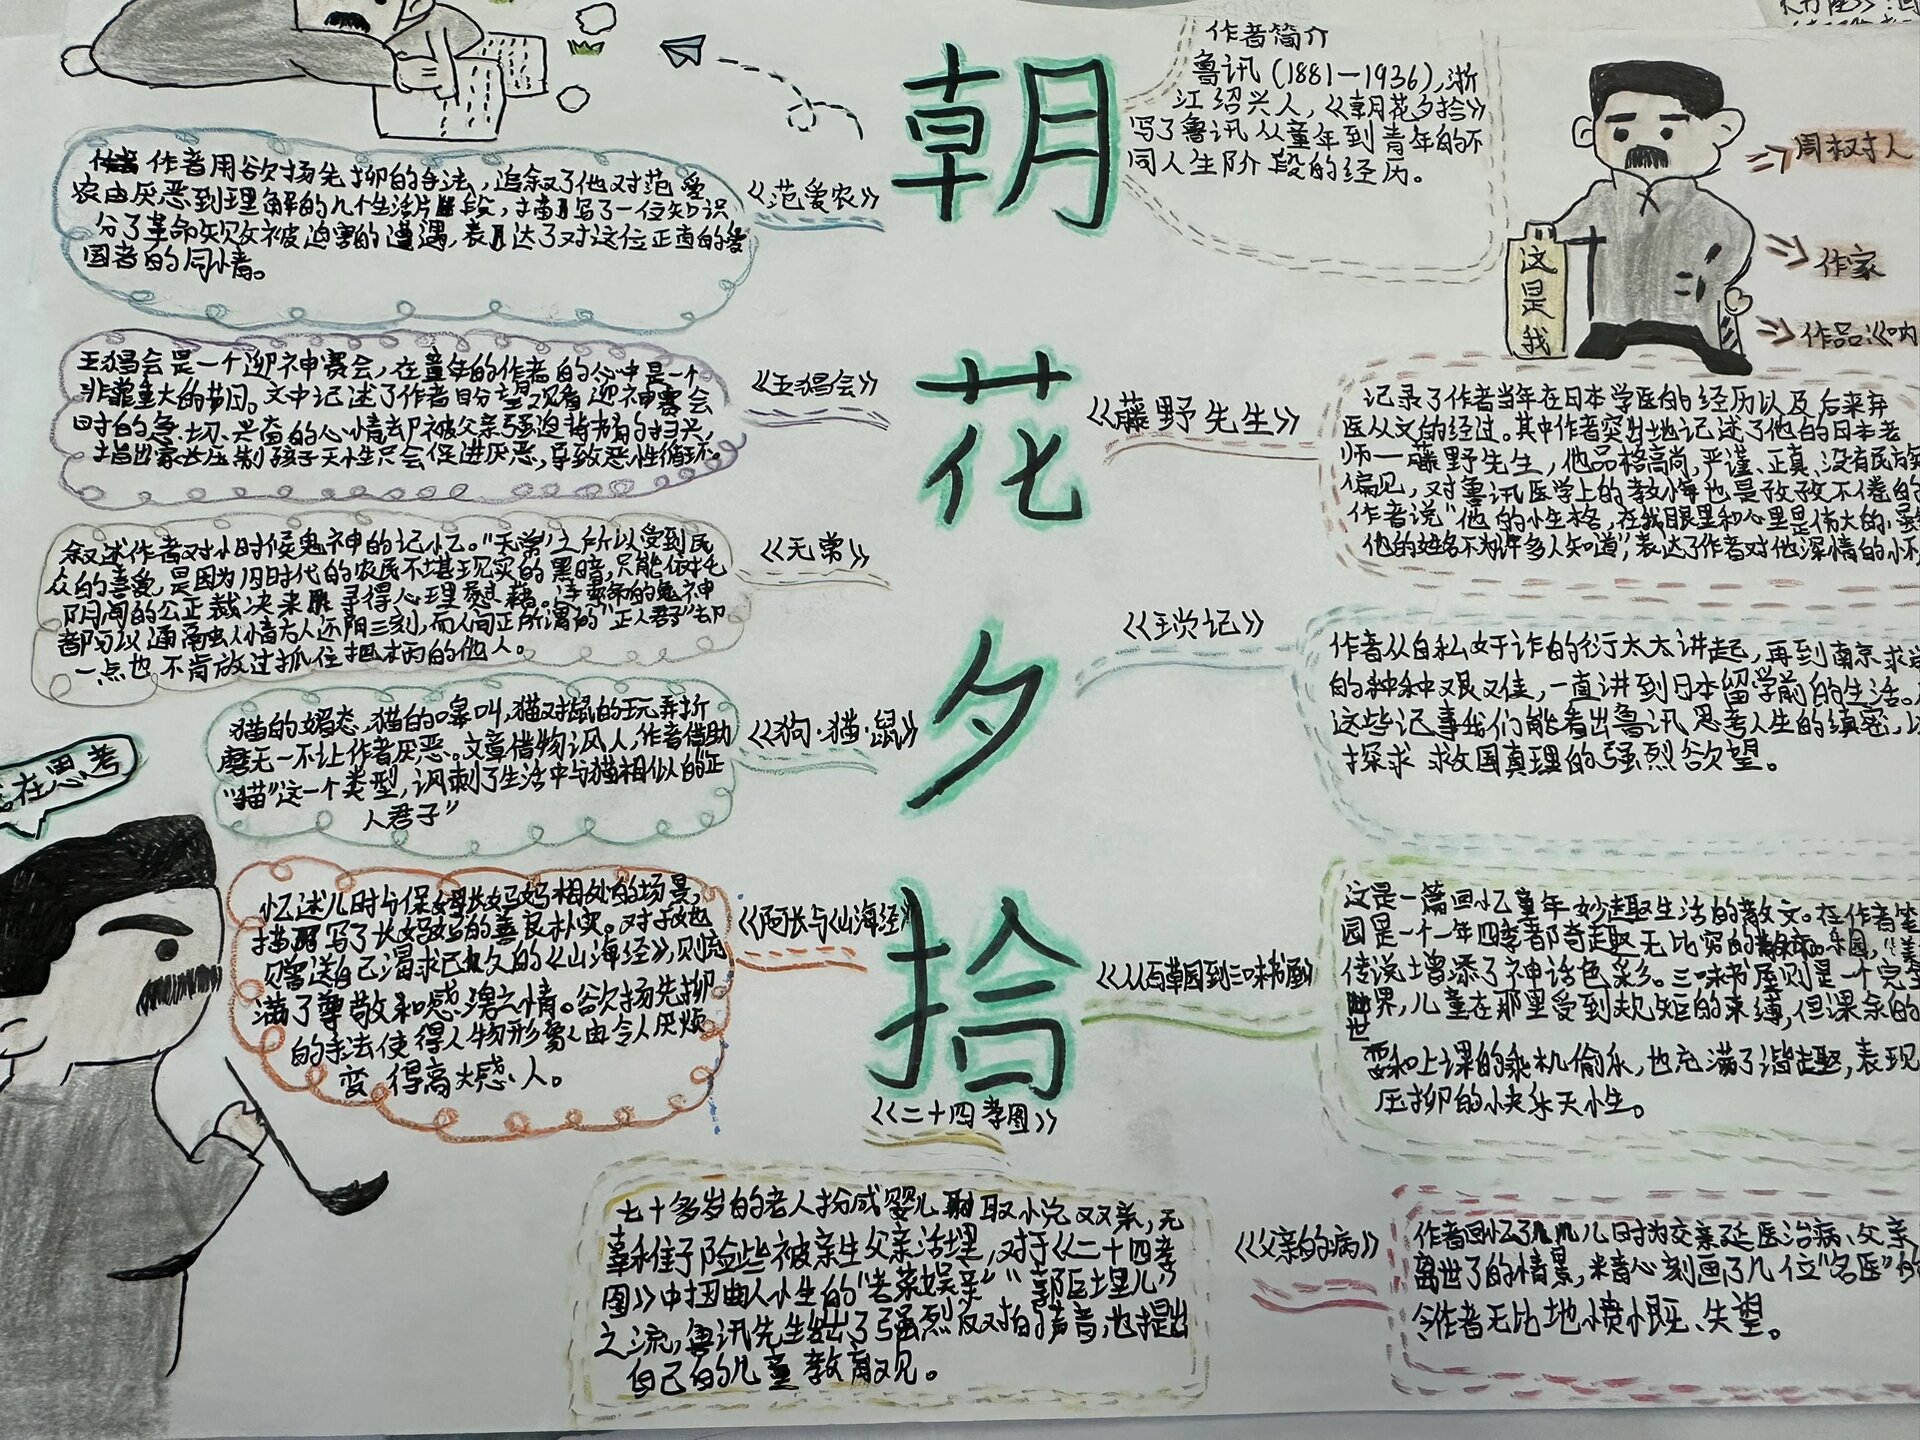 朝花夕拾
作者简介
鲁讯(1881—1936),浙
江绍兴人,《朝花夕拾》
写了鲁讯从童年到青年的不
同人生阶段的经历。
周树人
作家
作品:《呐
这是我
《范爱农》
作者用欲扬先抑的手法,追叙了他对范爱
农由厌恶到理解的几个生活片段,描写了一位知识
分了革命失败被迫害的遭遇,表达了对这位正直的爱
国者的同情。
《五猖会》
五猖会是一个迎神赛会,在童年的作者的心中是一个
非常重大的节日。文中记述了作者盼望观看迎神赛会
时的急切、兴奋的心情却被父亲强迫背书的扫兴,
指出家长压制孩子天性只会促进厌恶,导致恶性循环。
《无常》
叙述作者对小时候鬼神的记忆。"无常"之所以受到民
众的喜爱,是因为旧时代的农民不堪现实的黑暗,只能依托
阴间的公正裁决来寻得心理慰藉。连索命的鬼神
都可以通融人情右人还阳三刻,而人间正所谓的"正人君子"却
一点也不肯放过抓住把柄的他人。
《狗·猫·鼠》
猫的媚态,猫的嗥叫,猫对鼠的玩弄折
磨无一不让作者厌恶。文章借物讽人,作者借助
"猫"这一个类型,讽刺了生活中与猫相似的"正
人君子"
在思考
《阿长与《山海经》
忆述儿时与保姆长妈妈相处的场景,
描写了长妈妈的善良朴实。对于她
赠送自己渴求已久的《山海经》,则充
满了尊敬和感激之情。欲扬先抑
的手法使得人物形象由令人厌烦
变得高大感人。
《二十四孝图》
七十多岁的老人扮成婴儿取悦双亲,无
辜稚子险些被亲生父亲活埋,对于《二十四孝
图》中扭曲人性的"老莱娱亲""郭巨埋儿"
之流,鲁讯先生给出了强烈反对的声音,也提出
自己的儿童教育观。
《藤野先生》
记录了作者当年在日本学医的经历以及后来弃
医从文的经过。其中作者突出地记述了他的日本老
师—藤野先生,他品格高尚,严谨、正真、没有民族
偏见,对鲁讯医学上的教悔也是孜孜不倦的
作者说"他的性格,在我眼里和心里是伟大的,虽然
他的姓名不为许多人知道",表达了作者对他深情的怀
《琐记》
作者从自私奸诈的衍太太讲起,再到南京求学
的种种艰难,一直讲到日本留学前的生活。
这些记事我们能看出鲁讯思考人生的缜密,以
探求救国真理的强烈欲望。
《从百草园到三味书屋》
这是一篇回忆童年妙趣生活的散文。在作者笔
园是一个一年四季都奇趣无比穷的乐园,"美
传说增添了神话色彩。三味书屋则是一个完全
世界,儿童在那里受到规矩的束缚,但课余的
耍和上课的乘机偷乐,也充满了谐趣,表现
压抑的快乐天性。
《父亲的病》
作者回忆了儿时为父亲延医治病、父亲
离世了的情景,精心刻画了几位"名医"的
令作者无比地愤慨、失望。